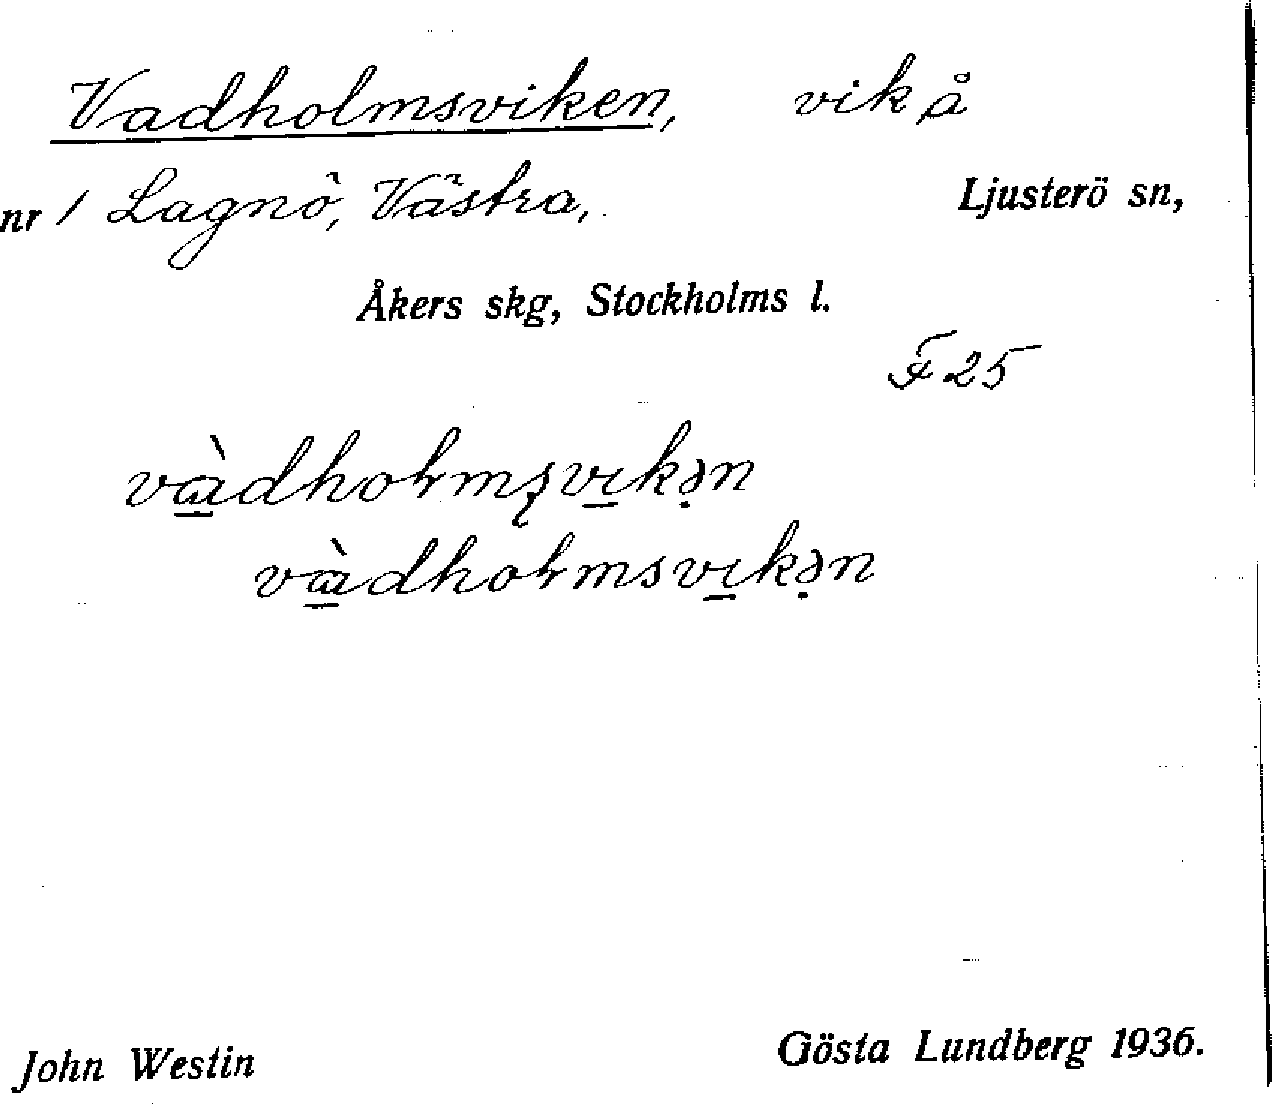 Vadholmsviken, vik å
nr 1 Lagnö, Västra, Ljusterö sn,
Åkers skg, Stockholms l.
F 25
John Westin Gösta Lundberg 1936.